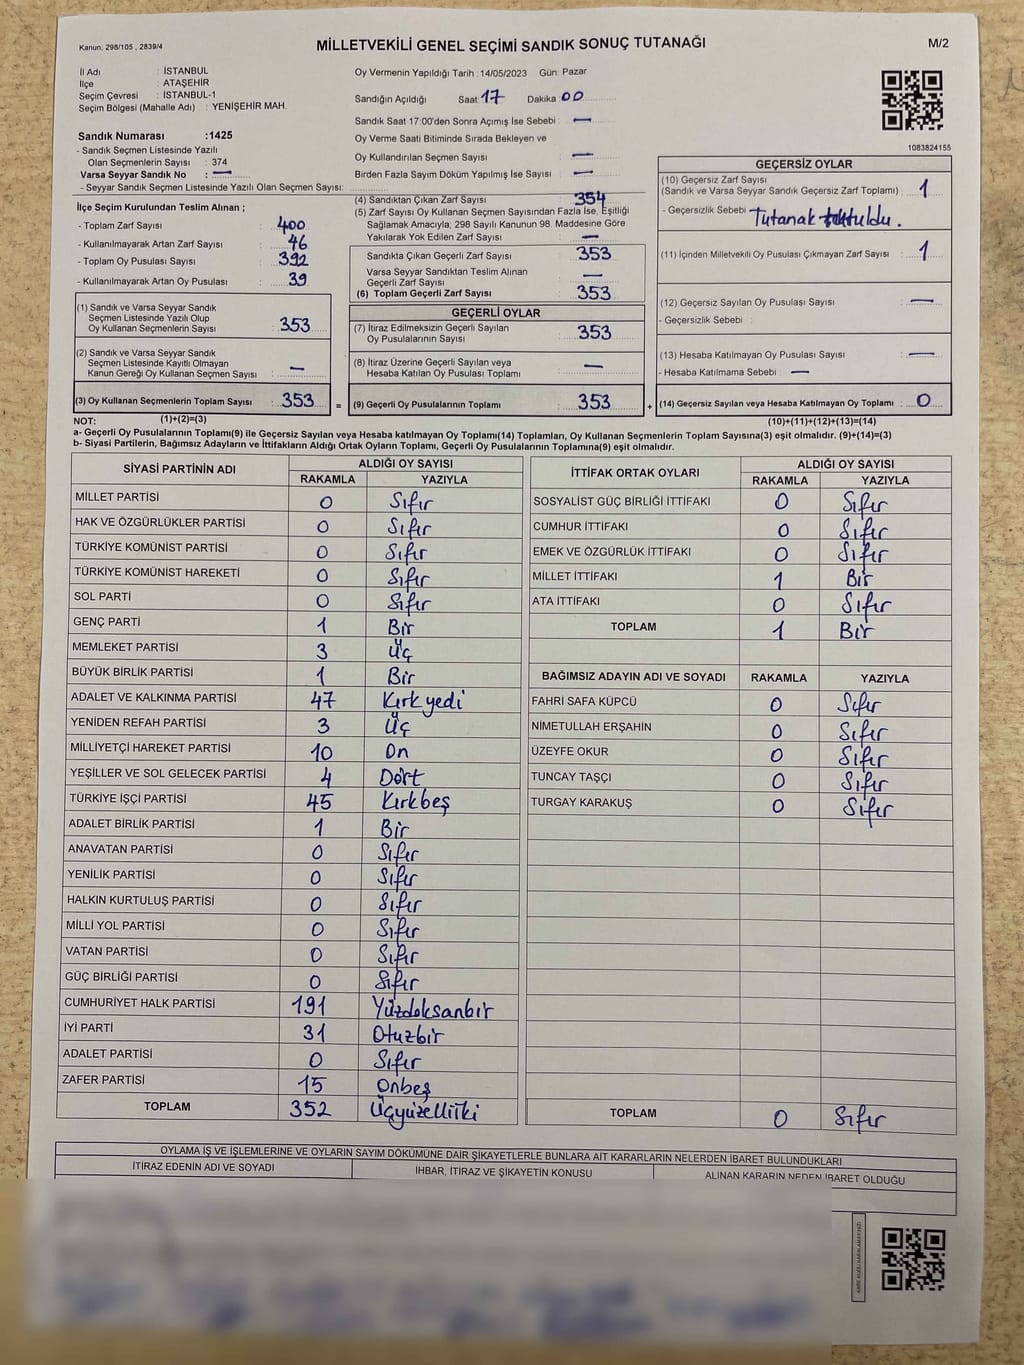 Kanun; 298/105 , 2839/4
MİLLETVEKİLİ GENEL SEÇİMİ SANDIK SONUÇ TUTANAĞI
M/2
İl Adı : İSTANBUL
İlçe : ATAŞEHİR
Seçim Çevresi : İSTANBUL-1
Seçim Bölgesi (Mahalle Adı) : YENİŞEHİR MAH.
Sandık Numarası :1425
- Sandık Seçmen Listesinde Yazılı
Olan Seçmenlerin Sayısı : 374
Varsa Seyyar Sandık No : —
- Seyyar Sandık Seçmen Listesinde Yazılı Olan Seçmen Sayısı:
Oy Vermenin Yapıldığı Tarih : 14/05/2023 Gün: Pazar
Sandığın Açıldığı Saat: 17 Dakika: 00
Sandık Saat 17:00'den Sonra Açımış İse Sebebi : —
Oy Verme Saati Bitiminde Sırada Bekleyen ve
Oy Kullandırılan Seçmen Sayısı : —
Birden Fazla Sayım Döküm Yapılmış İse Sayısı : —
1083824155
İlçe Seçim Kurulundan Teslim Alınan ;
- Toplam Zarf Sayısı : 400
- Kullanılmayarak Artan Zarf Sayısı : 46
- Toplam Oy Pusulası Sayısı : 392
- Kullanılmayarak Artan Oy Pusulası : 39
(1) Sandık ve Varsa Seyyar Sandık
Seçmen Listesinde Yazılı Olup
Oy Kullanan Seçmenlerin Sayısı : 353
(2) Sandık ve Varsa Seyyar Sandık
Seçmen Listesinde Kayıtlı Olmayan
Kanun Gereği Oy Kullanan Seçmen Sayısı : —
(3) Oy Kullanan Seçmenlerin Toplam Sayısı : 353 =
(1)+(2)=(3)
(4) Sandıktan Çıkan Zarf Sayısı : 354
(5) Zarf Sayısı Oy Kullanan Seçmen Sayısından Fazla İse, Eşitliği
Sağlamak Amacıyla; 298 Sayılı Kanunun 98. Maddesine Göre
Yakılarak Yok Edilen Zarf Sayısı : —
Sandıkta Çıkan Geçerli Zarf Sayısı : 353
Varsa Seyyar Sandıktan Teslim Alınan
Geçerli Zarf Sayısı : —
(6) Toplam Geçerli Zarf Sayısı : 353
GEÇERLİ OYLAR
(7) İtiraz Edilmeksizin Geçerli Sayılan
Oy Pusulalarının Sayısı : 353
(8) İtiraz Üzerine Geçerli Sayılan veya
Hesaba Katılan Oy Pusulası Toplamı : —
(9) Geçerli Oy Pusulalarının Toplamı : 353 +
GEÇERSİZ OYLAR
(10) Geçersiz Zarf Sayısı
(Sandık ve Varsa Seyyar Sandık Geçersiz Zarf Toplamı) : 1
- Geçersizlik Sebebi : Tutanak tutuldu.
(11) İçinden Milletvekili Oy Pusulası Çıkmayan Zarf Sayısı : 1
(12) Geçersiz Sayılan Oy Pusulası Sayısı : —
- Geçersizlik Sebebi :
(13) Hesaba Katılmayan Oy Pusulası Sayısı : —
- Hesaba Katılmama Sebebi : —
(14) Geçersiz Sayılan veya Hesaba Katılmayan Oy Toplamı : 0
(10)+(11)+(12)+(13)=(14)
NOT:
a- Geçerli Oy Pusulalarının Toplamı(9) ile Geçersiz Sayılan veya Hesaba katılmayan Oy Toplamı(14) Toplamları, Oy Kullanan Seçmenlerin Toplam Sayısına(3) eşit olmalıdır. (9)+(14)=(3)
b- Siyasi Partilerin, Bağımsız Adayların ve İttifakların Aldığı Ortak Oyların Toplamı, Geçerli Oy Pusulalarının Toplamına(9) eşit olmalıdır.
SİYASİ PARTİNİN ADI ALDIĞI OY SAYISI
RAKAMLA YAZIYLA
MİLLET PARTİSİ 0 Sıfır
HAK VE ÖZGÜRLÜKLER PARTİSİ 0 Sıfır
TÜRKİYE KOMÜNİST PARTİSİ 0 Sıfır
TÜRKİYE KOMÜNİST HAREKETİ 0 Sıfır
SOL PARTİ 0 Sıfır
GENÇ PARTİ 1 Bir
MEMLEKET PARTİSİ 3 Üç
BÜYÜK BİRLİK PARTİSİ 1 Bir
ADALET VE KALKINMA PARTİSİ 47 Kırkyedi
YENİDEN REFAH PARTİSİ 3 Üç
MİLLİYETÇİ HAREKET PARTİSİ 10 On
YEŞİLLER VE SOL GELECEK PARTİSİ 4 Dört
TÜRKİYE İŞÇİ PARTİSİ 45 Kırkbeş
ADALET BİRLİK PARTİSİ 1 Bir
ANAVATAN PARTİSİ 0 Sıfır
YENİLİK PARTİSİ 0 Sıfır
HALKIN KURTULUŞ PARTİSİ 0 Sıfır
MİLLİ YOL PARTİSİ 0 Sıfır
VATAN PARTİSİ 0 Sıfır
GÜÇ BİRLİĞİ PARTİSİ 0 Sıfır
CUMHURİYET HALK PARTİSİ 191 Yüzdoksanbir
İYİ PARTİ 31 Otuzbir
ADALET PARTİSİ 0 Sıfır
ZAFER PARTİSİ 15 Onbeş
TOPLAM 352 Üçyüzelliiki
İTTİFAK ORTAK OYLARI ALDIĞI OY SAYISI
RAKAMLA YAZIYLA
SOSYALİST GÜÇ BİRLİĞİ İTTİFAKI 0 Sıfır
CUMHUR İTTİFAKI 0 Sıfır
EMEK VE ÖZGÜRLÜK İTTİFAKI 0 Sıfır
MİLLET İTTİFAKI 1 Bir
ATA İTTİFAKI 0 Sıfır
TOPLAM 1 Bir
BAĞIMSIZ ADAYIN ADI VE SOYADI RAKAMLA YAZIYLA
FAHRİ SAFA KÜPCÜ 0 Sıfır
NİMETULLAH ERŞAHİN 0 Sıfır
ÜZEYFE OKUR 0 Sıfır
TUNCAY TAŞÇI 0 Sıfır
TURGAY KARAKUŞ 0 Sıfır
TOPLAM 0 Sıfır
OYLAMA İŞ VE İŞLEMLERİNE VE OYLARIN SAYIM DÖKÜMÜNE DAİR ŞİKAYETLERLE BUNLARA AİT KARARLARIN NELERDEN İBARET BULUNDUKLARI
İTİRAZ EDENİN ADI VE SOYADI İHBAR, İTİRAZ VE ŞİKAYETİN KONUSU ALINAN KARARIN NEDEN İBARET OLDUĞU